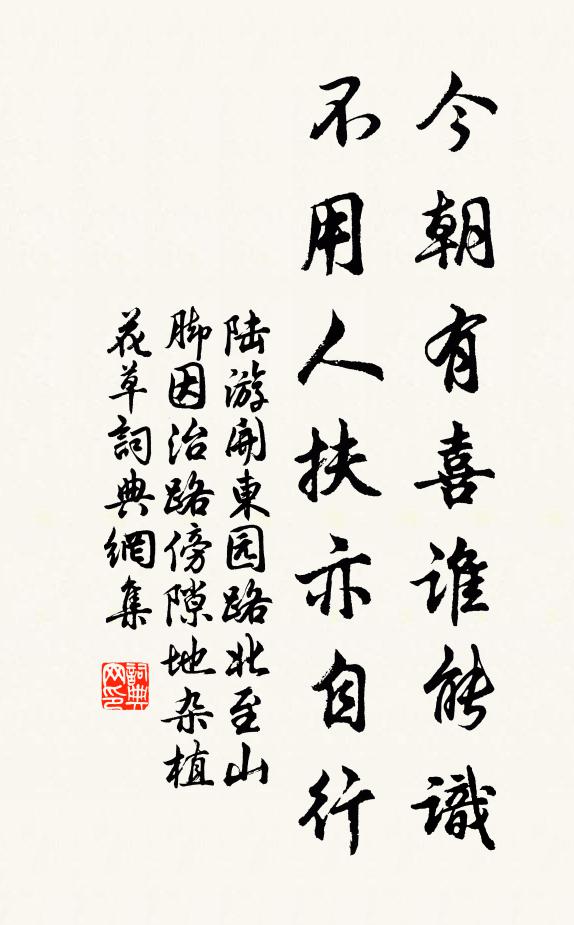 今朝有喜誰能識
不用人扶亦自行
陆游開東园路北至山
脚因治路傍隙地杂植
花草詞典網集
詞典
网印